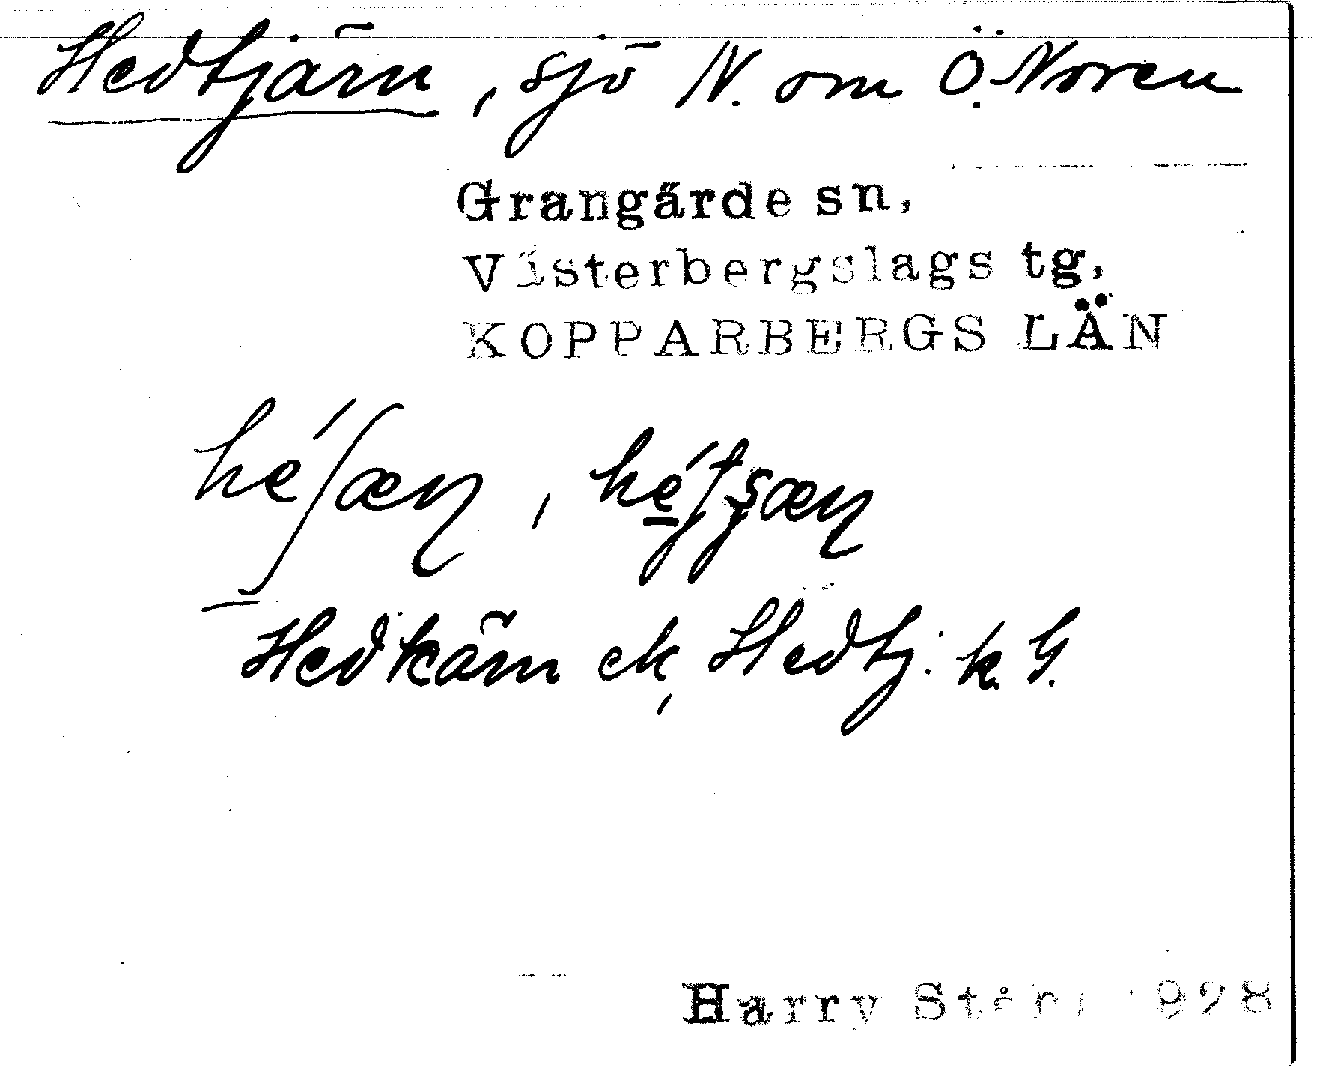 Hedtjärn, sjö N. om Ö. Noren
Grangärde sn,
Västerbergslags tg,
KOPPARBERGS LÄN
Hedkärn ek, Hedtj. k. G.
Harry Ståhl 1928